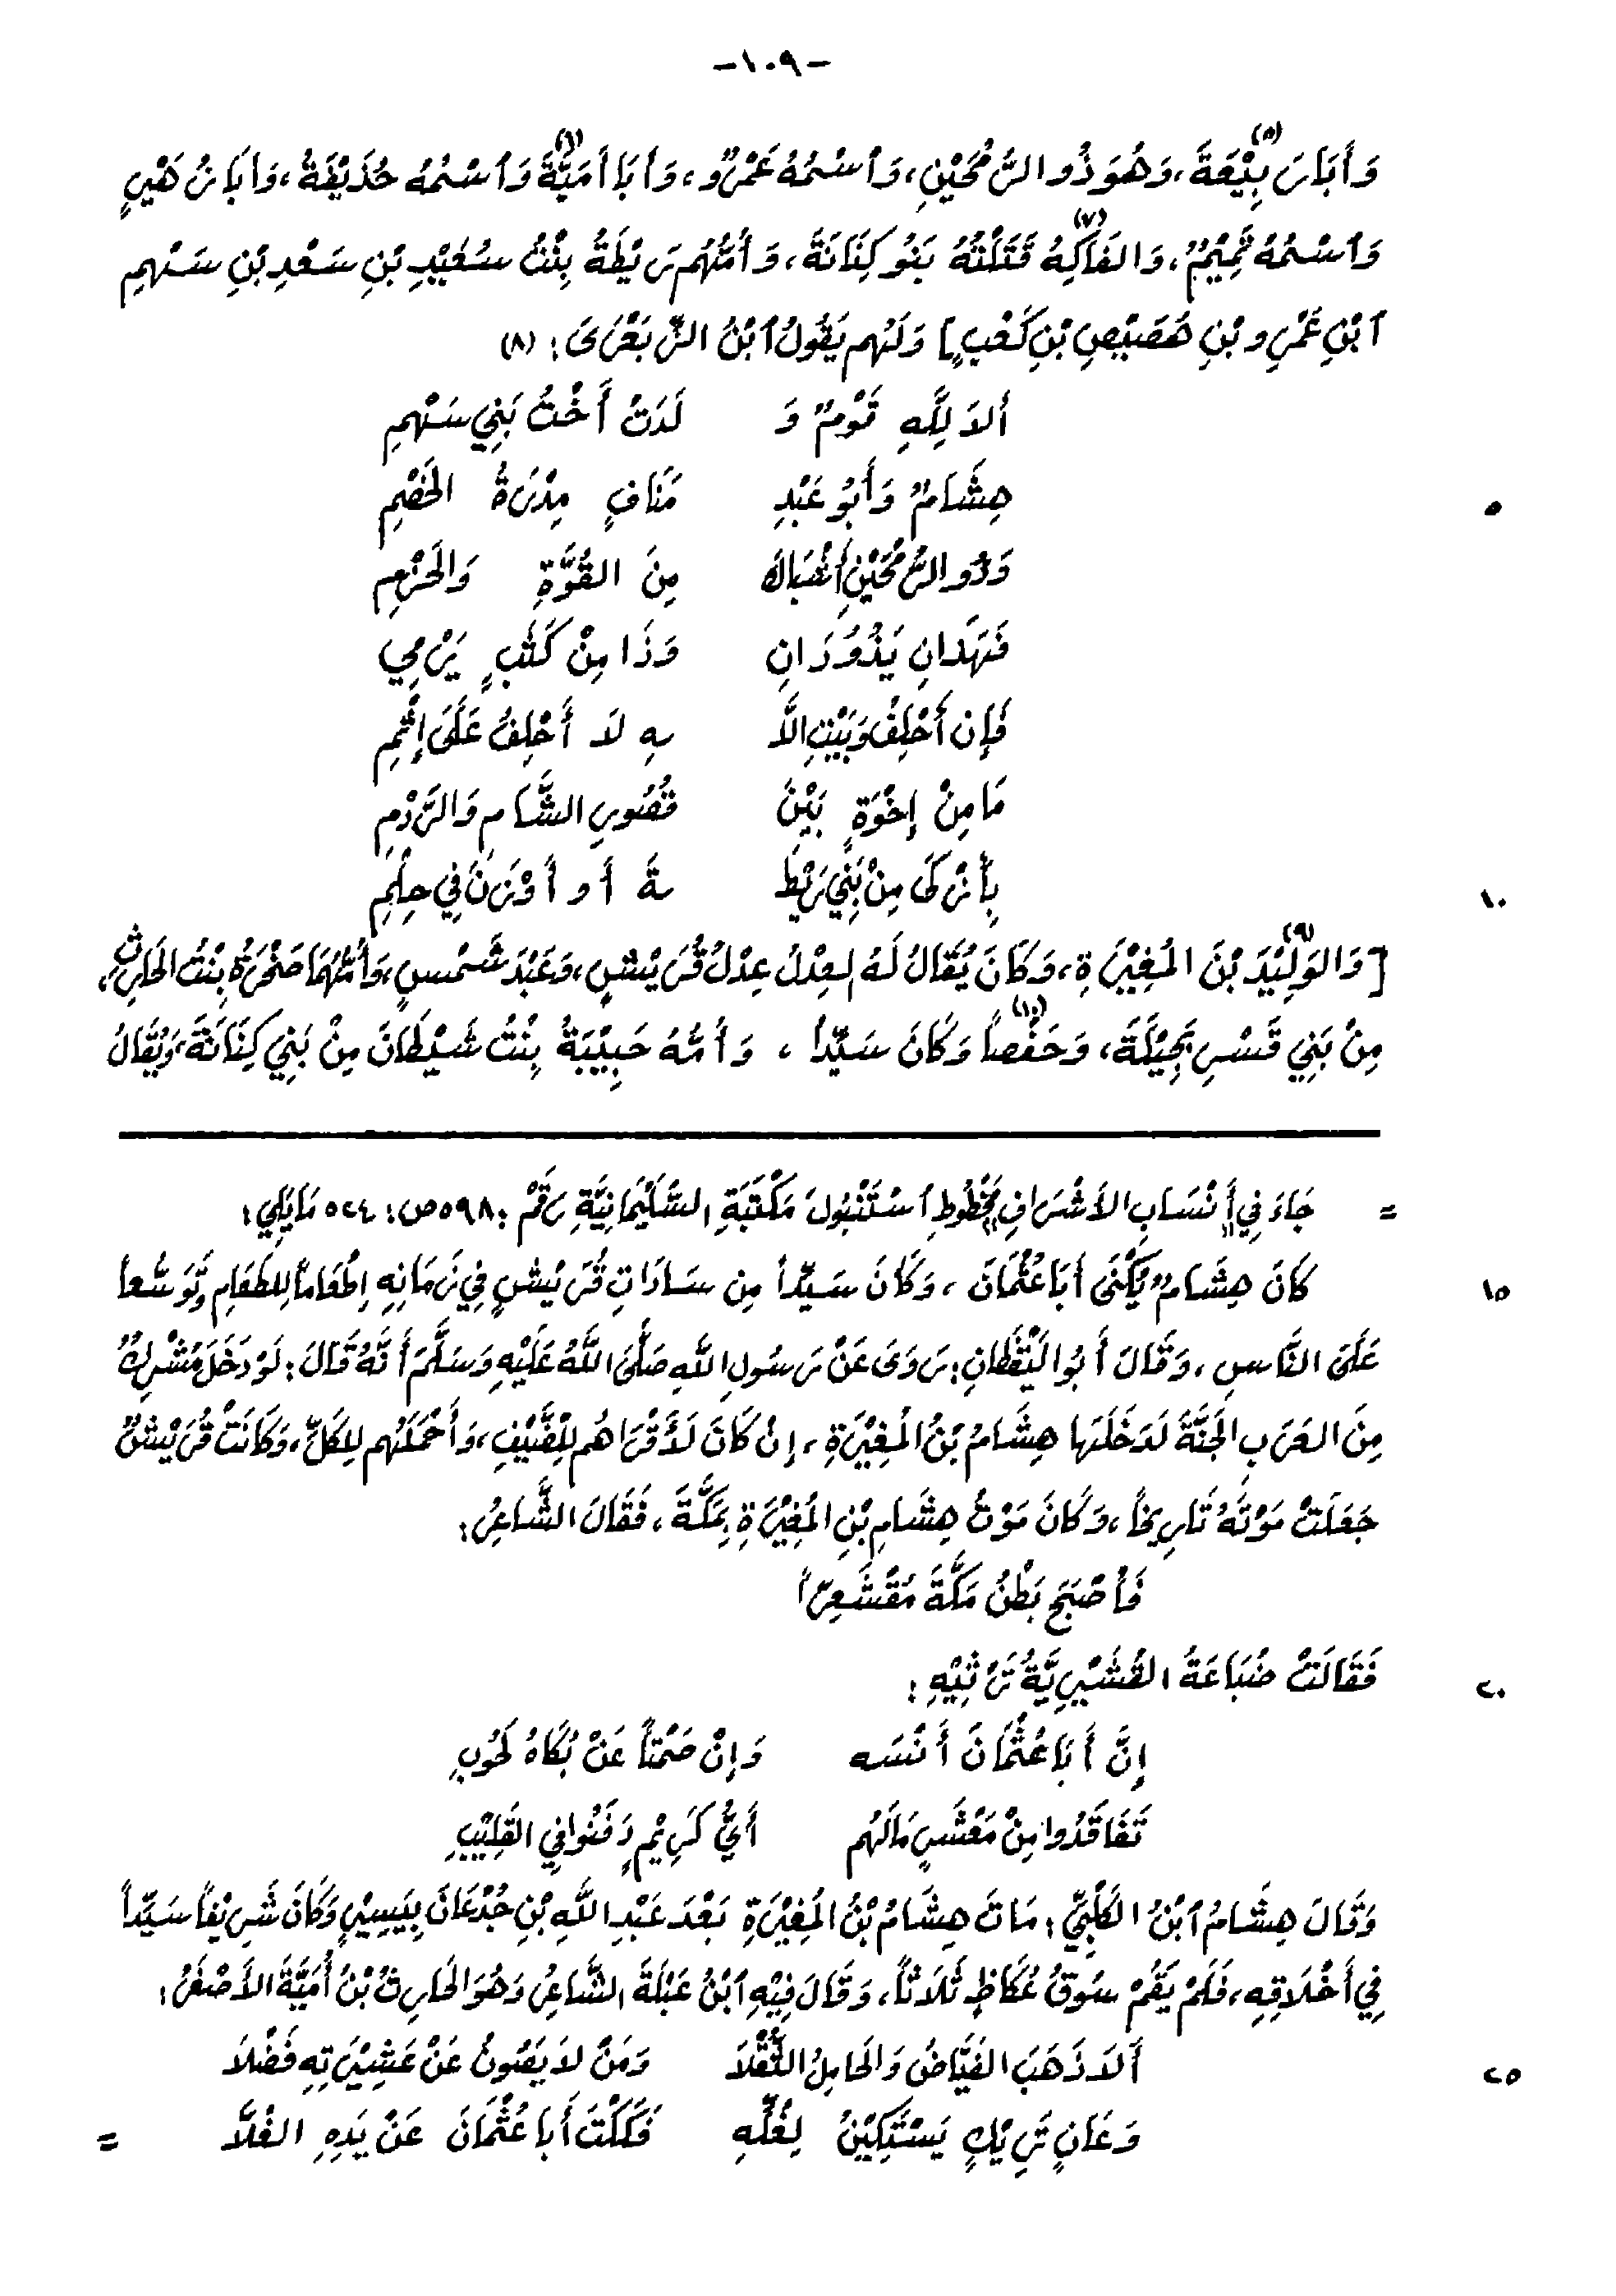 -١٠٩-
وَأَبَا رَبِيْعَةَ(٥)، وَهُوَ ذُو الرُّمْحَيْنِ، وَٱسْمُهُ عَمْرٌو، وَأَبَا أُمَيَّةَ(٦) وَٱسْمُهُ حُذَيْفَةُ، وَأَبَا زُهَيْرٍ
وَٱسْمُهُ تَمِيْمٌ، وَالفَاكِهَ(٧) قَتَلَتْهُ بَنُو كِنَانَةَ، وَأُمُّهُم رَيْطَةُ بِنْتُ سُعَيْدِ بْنِ سَعْدِ بْنِ سَهْمِ
ٱبْنِ عَمْرِو بْنِ هُصَيْصِ بْنِ كَعْبٍ] وَلَهُم يَقُولُ ٱبْنُ الزِّبَعْرَى: (٨)
أَلاَ لِلَّهِ قَوْمٌ وَ لَدَتْ أُخْتُ بَنِي سَهْمِ
هِشَامٌ وَأَبُو عَبْدِ مَنَافٍ مِدْرَهُ الخَصْمِ
٥
وَذُو الرُّمْحَيْنِ أَشْبَاكَ مِنَ القُوَّةِ وَالحَزْمِ
فَهَذَانِ يَذُودَانِ وَذَا مِنْ كَثَبٍ يَرْمِي
فَإِن أَحْلِفْ وَبَيْتِ اللَّ ـهِ لاَ أَحْلِفُ عَلَى إِثْمِ
مَا مِنْ إِخْوَةٍ بَيْنَ قُصُورِ الشَّامِ وَالرَّدْمِ
بِأَزْكَى مِنْ بَنِي رَيْطَ ـةَ أَو أَوْزَنَ فِي حِلْمِ
١٠
[وَالوَلِيْدَ(٩) بْنَ المُغِيْرَةِ، وَكَانَ يُقَالُ لَهُ العِدْلُ عِدْلُ قُرَيْشٍ، وَعَبْدَ شَمْسٍ، وَأُمُّهُمَا صَخْرَةُ بِنْتُ الحَارِثِ،
مِنْ بَنِي قَسْرِ بَجِيْلَةَ، وَحَفْصاً(١٠) وَكَانَ سَيِّداً ، وَأُمُّهُ حَبِيْبَةُ بِنْتُ شَيْطَانَ مِنْ بَنِي كِنَانَةَ، وَيُقَالُ
= جَاءَ فِي "أَنْسَابِ الأَشْرَافِ" مَخْطُوطِ ٱسْتَنْبُولَ مَكْتَبَةِ السُّلَيْمَانِيَّةِ رَقْمْ: ٥٩٨ ص: ٥٢٤ مَا يَلِي:
كَانَ هِشَامٌ يُكْنَى أَبَا عُثْمَانَ ، وَكَانَ سَيِّداً مِن سَادَاتِ قُرَيْشٍ فِي زَمَانِهِ إِطْعَاماً لِلطَعَامِ وَتَوَسُّعاً
١٥
عَلَى النَّاسِ، وَقَالَ أَبُو اليَقْظَانِ: رَوَى عَنْ رَسُولِ اللهِ صَلَّى اللَّهُ عَلَيْهِ وَسَلَّمَ أَنَّهُ قَالَ: لَوْ دَخَلَ مُشْرِكٌ
مِنَ العَرَبِ الجَنَّةَ لَدَخَلَهَا هِشَامُ بْنُ المُغِيْرَةِ، إِنْ كَانَ لَأَقْرَاهُم لِلضَّيْفِ، وَأَحْمَلَهُم لِلكَلِّ، وَكَانَتْ قُرَيْشٌ
جَعَلَتْ مَوْتَهُ تَارِيخاً، وَكَانَ مَوْتُ هِشَامِ بْنِ المُغِيْرَةِ بِمَكَّةَ، فَقَالَ الشَّاعِرُ:
فَأَصْبَحَ بَطْنُ مَكَّةَ مُقْشَعِرّاً
فَقَالَتْ ضُبَاعَةُ القُشَيْرِيَّةُ تَرْثِيْهِ:
٢٠
إِنَّ أَبَا عُثْمَانَ أَنْسَه وَإِنْ صَمْتاً عَنْ بُكَاهُ لَحُوبِ
تَفَاقَدُوا مِنْ مَعْشَرٍ مَالَهُم أَيَّ كَرِيْمٍ دَفَنُوا فِي القَلِيْبِ
وَقَالَ هِشَامُ ٱبْنُ الكَلْبِيِّ: مَاتَ هِشَامُ بْنُ المُغِيْرَةِ بَعْدَ عَبْدِ اللَّهِ بْنِ جُدْعَانَ بِيَسِيْرٍ وَكَانَ شَرِيْفاً سَيِّداً
فِي أَخْلَاقِهِ، فَلَمْ يَقُمْ سُوقُ عُكَاظٍ ثَلَاثاً، وَقَالَ فِيْهِ ٱبْنُ عَبْلَةَ الشَّاعِرُ وَهُوَ الحَارِثُ بْنُ أُمَيَّةَ الأَصْغَرُ:
أَلاَ ذَهَبَ الفَيَّاضُ وَالحَامِلُ الثُّقْلَا وَمَنْ لاَ يَصُونُ عَنْ عَشِيْرَتِهِ فَضْلَا
٢٥
وَعَانٍ تَرِيْكٍ يَسْتَكِيْنُ لِغُلِّهِ فَكَكْتَ أَبَا عُثْمَانَ عَنْ يَدِهِ الغُلَّا =